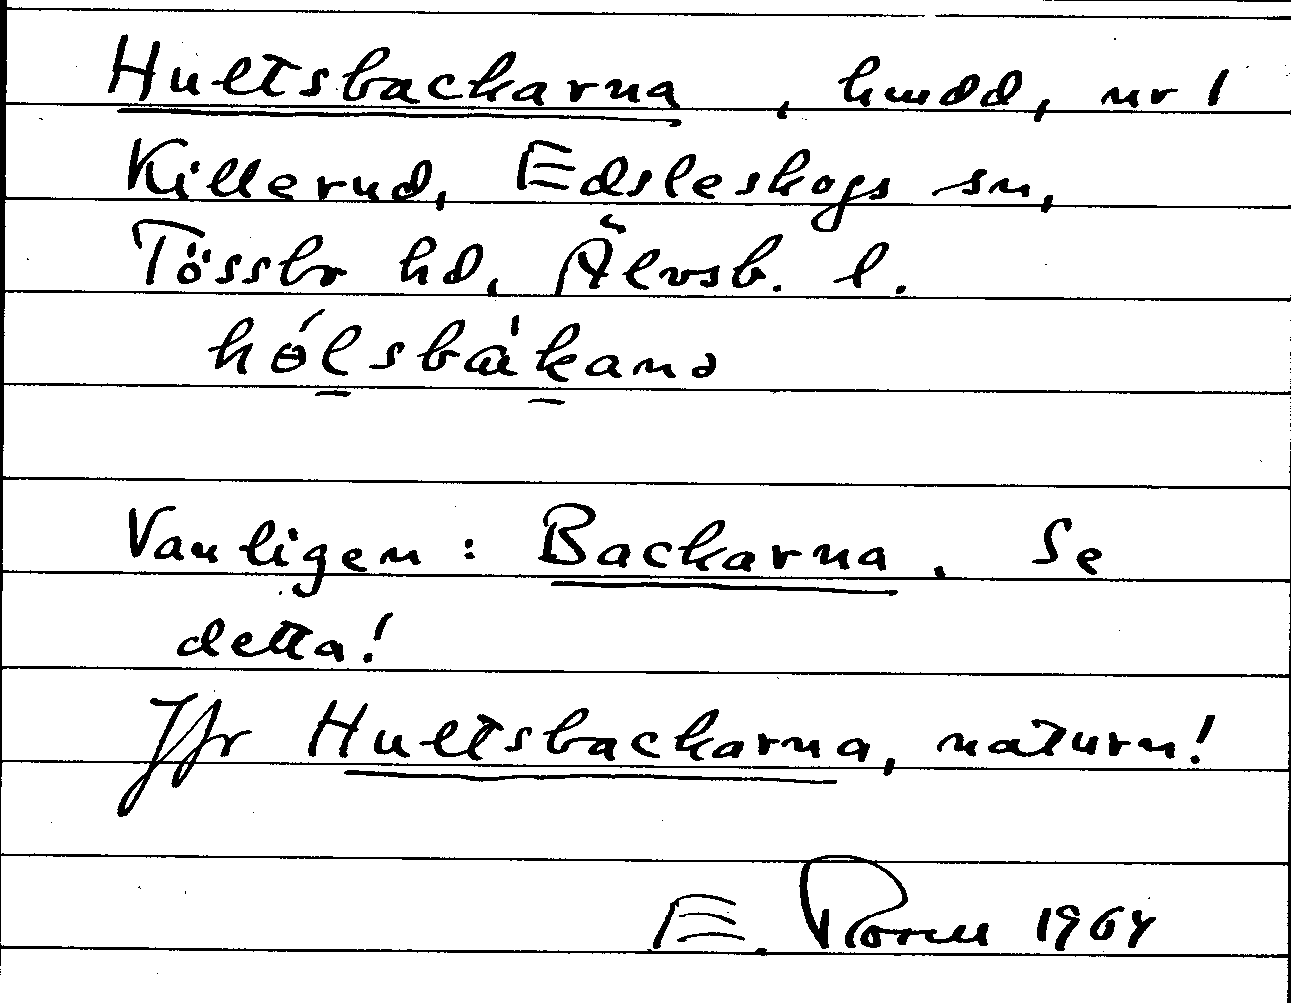 Hultsbackarna, hmdd, nr 1
Killerud, Edsleskogs sn,
Tössbo hd, Älvsb. l.
hólsbàkana
Vanligen: Backarna. Se
detta!
Jfr Hultsbackarna, naturn!
E. 1964